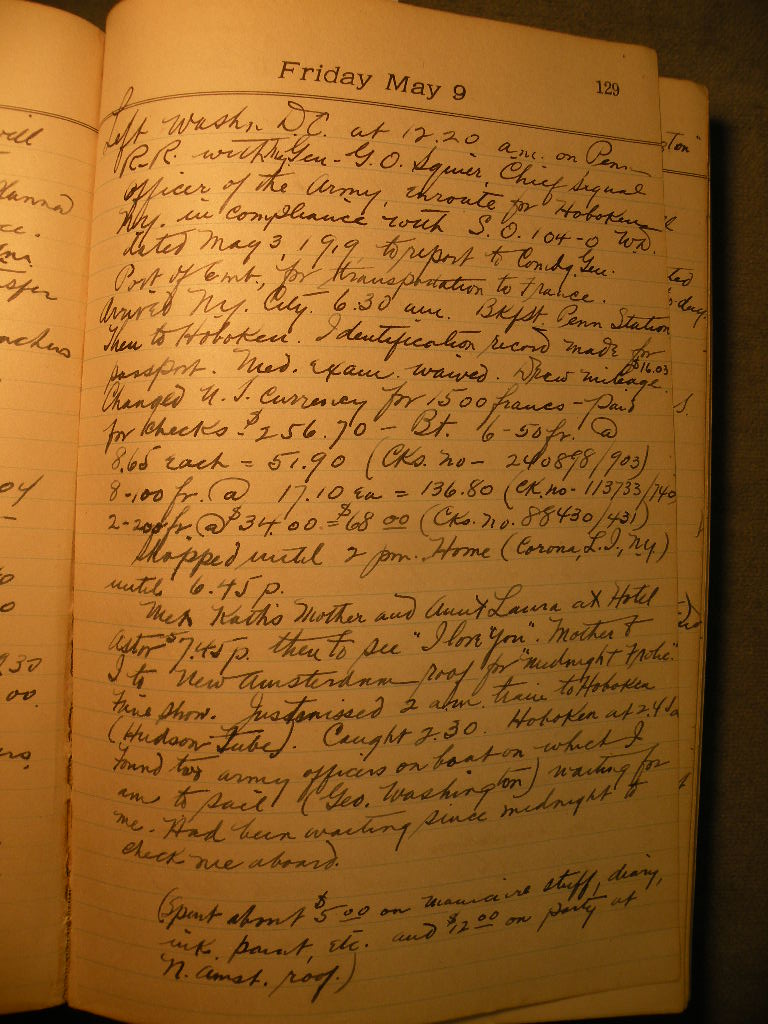 Friday May 9
129
Left Washn. D.C. at 12.20 am. on Penn
R.R. with Gen. G.O. Squier, Chief Signal
officer of the Army, enroute for Hoboken
N.J. in compliance with S.O. 104-0 W.D.
dated May 3, 1919, to report to Comdg. Gen.
Port of Emb., for transportation to France.
Arrived N.Y. City. 6.30 am. Bkfst Penn Station
Then to Hoboken. Identification record made for
passport. Med. Exam. waived. Drew mileage $16.03
Changed U.S. Currency for 1500 francs - paid
for checks - $256.70 - Bt. 6-50 fr. @
8.65 each = 51.90 (Cks. no - 240898/903)
8-100 fr. @ 17.10 ea = 136.80 (Ck. no - 113733/740
2-200 fr @ $34.00 = $68 00 (Cks. no. 88430/431)
Shopped until 2 pm. Home (Corona, L.I., N.Y.)
until 6.45 p.
Met Kath's Mother and Aunt Laura at Hotel
Astor 7.45 p. then to see "I love You". Mother &
I to New Amsterdam roof for "Midnight Frolic".
Fine show. Just missed 2 am. train to Hoboken
(Hudson Tube). Caught 2.30. Hoboken at 2.45 a
Found two army officers on boat on which I
am to sail (Geo. Washington) waiting for
me. Had been waiting since midnight to
check me aboard.
(Spent about $5 00 on manicure stuff, diary,
ink, etc. and $12 00 on party at
N. Amst. roof.)